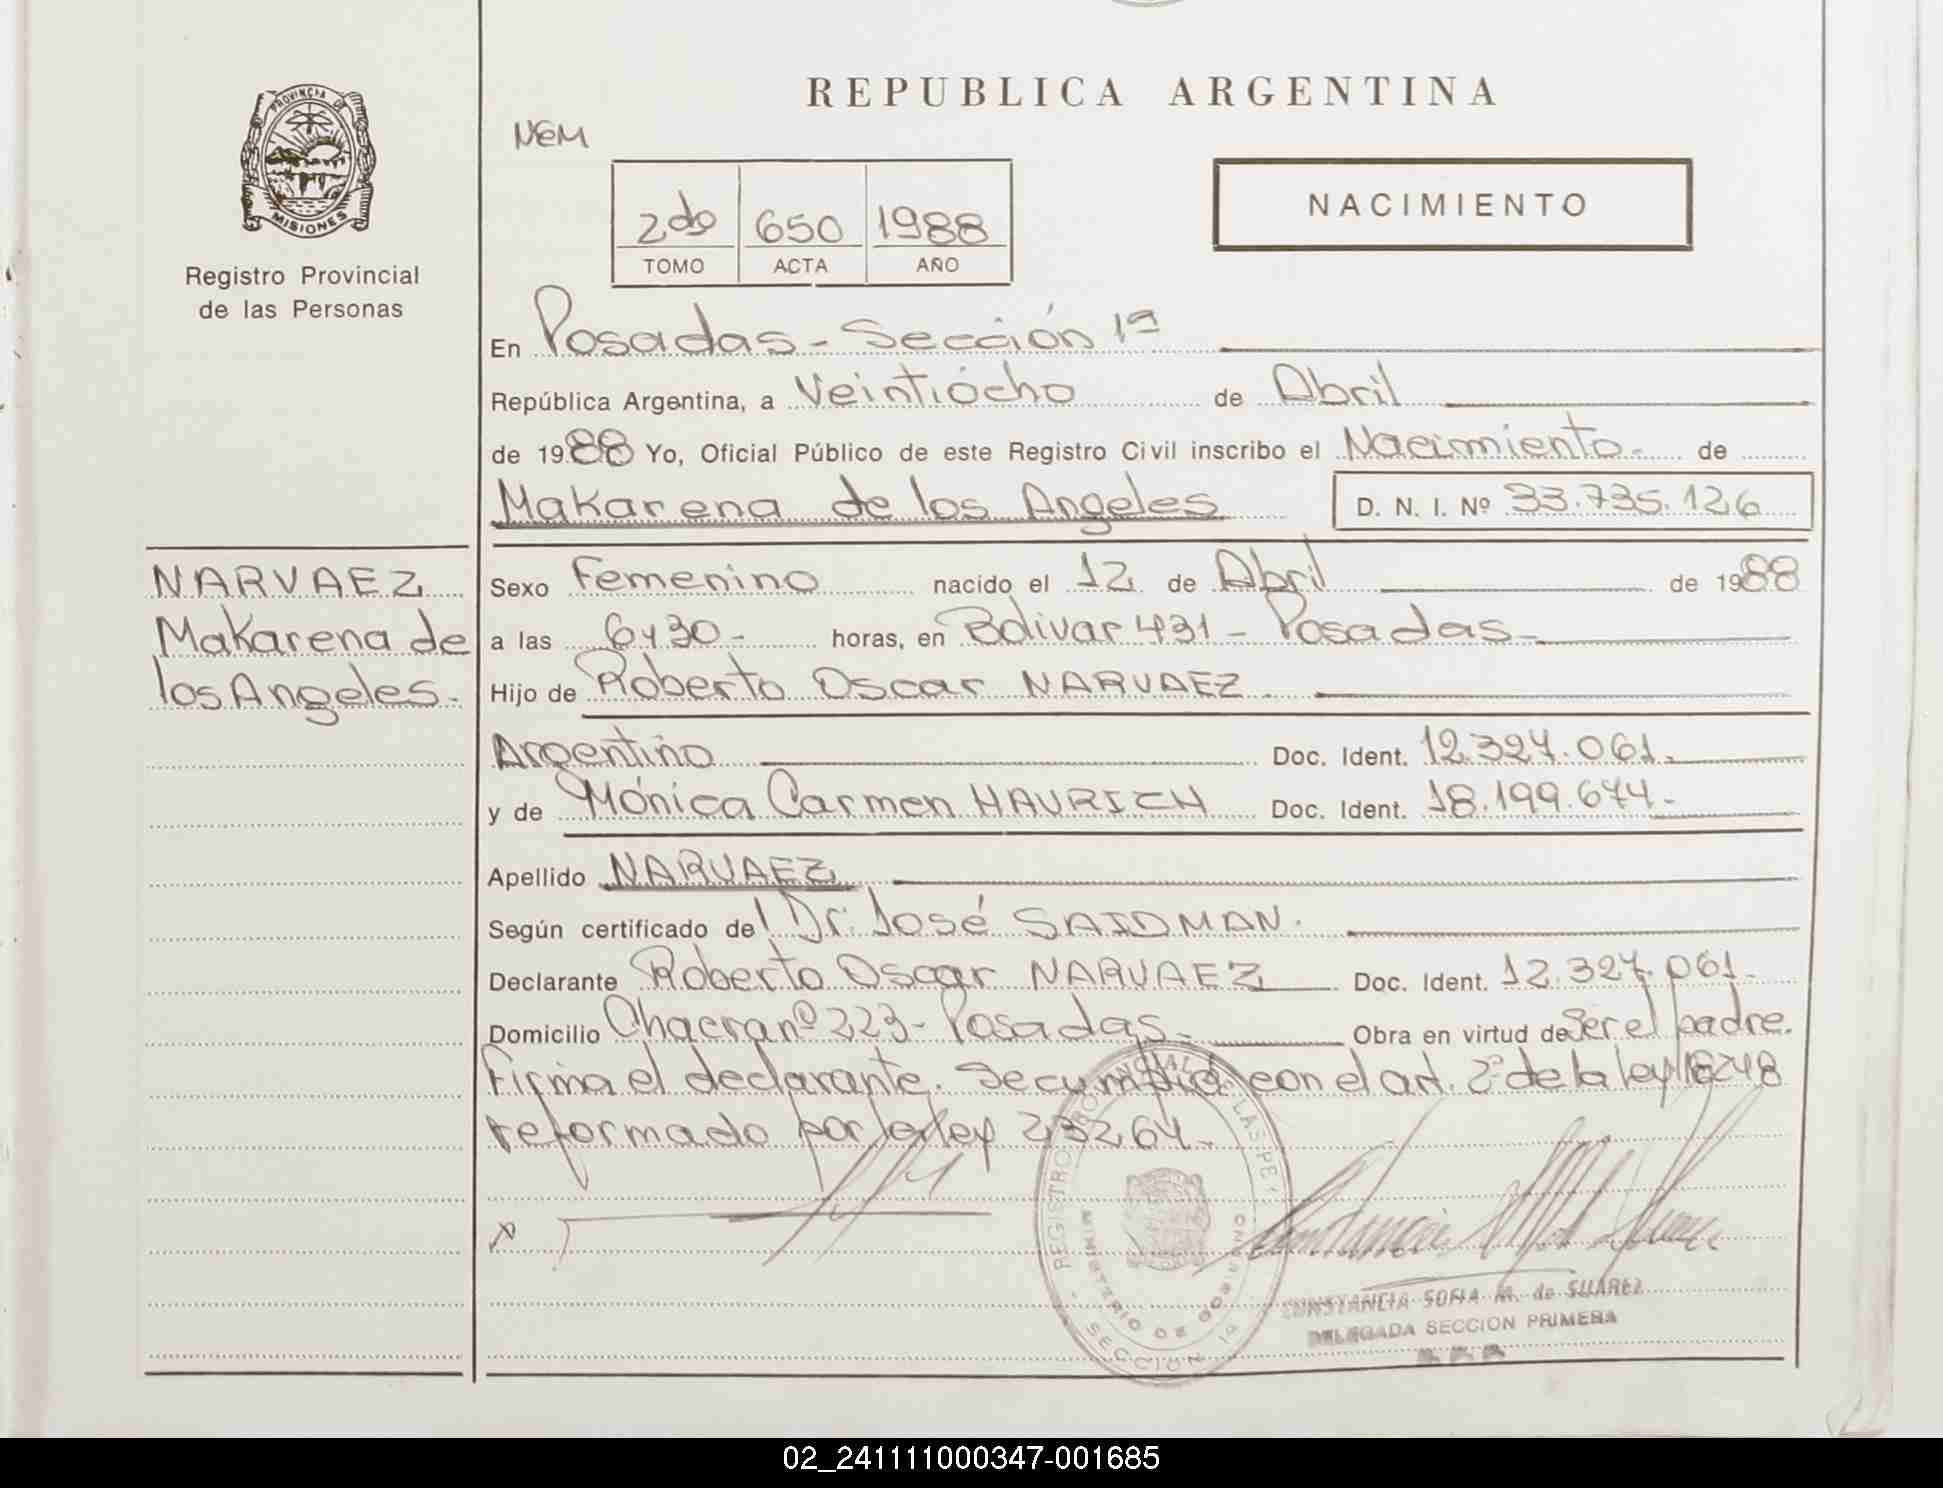 REPUBLICA ARGENTINA
PROVINCIA DE
MISIONES
Registro Provincial
de las Personas
NEM
2do 650 1988
TOMO ACTA AÑO
NACIMIENTO
En Posadas - Sección 1ª
República Argentina, a Veintiocho de Abril
de 1988 Yo, Oficial Público de este Registro Civil inscribo el Nacimiento - de
Makarena de los Angeles D. N. I. Nº 33.735.126
NARVAEZ
Makarena de
los Angeles.
Sexo Femenino nacido el 12 de Abril de 1988
a las 6y30- horas, en Bolivar 431 - Posadas -
Hijo de Roberto Oscar NARVAEZ
Argentino Doc. Ident. 12.327.061.
y de Mónica Carmen HAURICH Doc. Ident. 18.199.674-
Apellido NARVAEZ
Según certificado del Dr. José SAIDMAN.
Declarante Roberto Oscar NARVAEZ Doc. Ident. 12.327.061.
Domicilio Chacra nº 223 - Posadas - Obra en virtud de Ser el padre.
Firma el declarante. Se cumplió con el art. 2º de la ley 18248
reformado por la ley 23264.
CONSTANCIA SOFIA M. de SUAREZ
DELEGADA SECCION PRIMERA
02_241111000347-001685